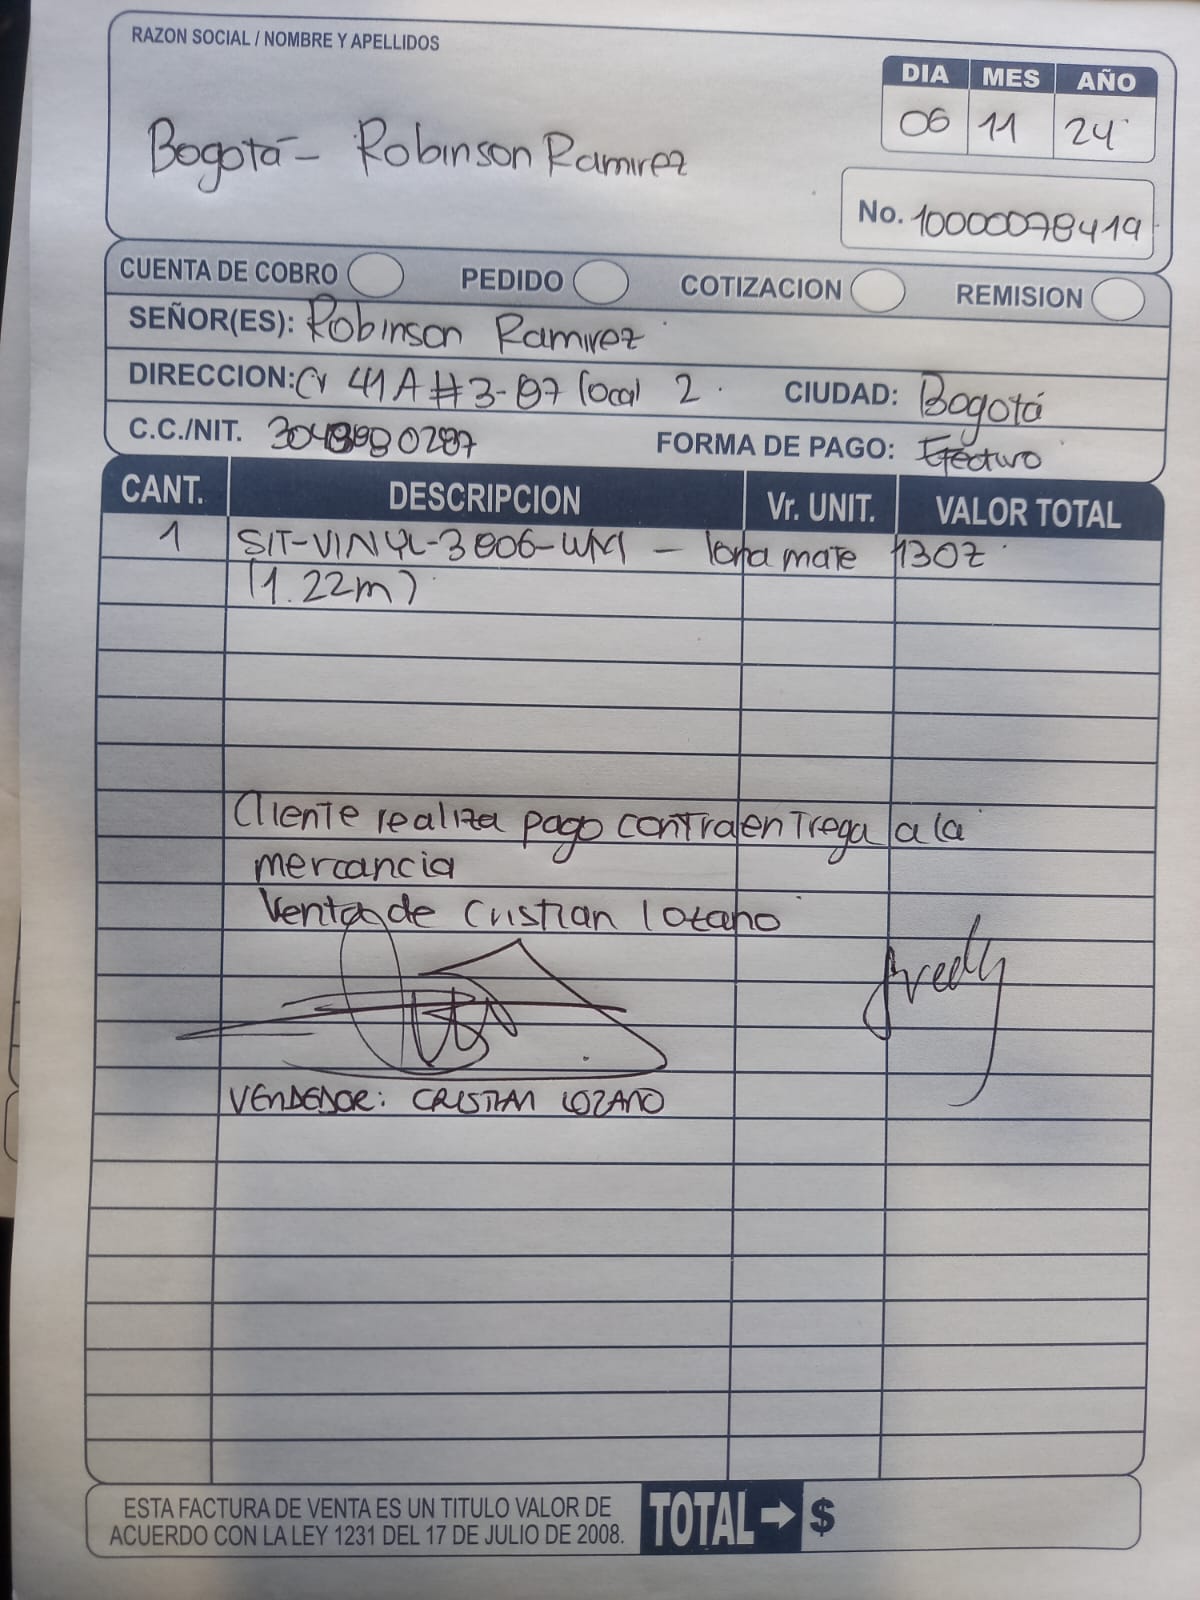 RAZON SOCIAL / NOMBRE Y APELLIDOS
DIA MES AÑO
06 11 24
Bogotá - Robinson Ramirez
No. 10000078419
CUENTA DE COBRO PEDIDO COTIZACION REMISION
SEÑOR(ES): Robinson Ramirez
DIRECCION: Cr 41A #3-87 local 2 CIUDAD: Bogotá
C.C./NIT. FORMA DE PAGO: Efectivo
CANT. DESCRIPCION Vr. UNIT. VALOR TOTAL
1 SIT-VINYL-3806-WM - lona mate 13OZ
(1.22m)
Cliente realiza pago contraentrega a la
mercancia
Venta de Cristian Lozano
Fredy
VENDEDOR: CRISTIAN LOZANO
ESTA FACTURA DE VENTA ES UN TITULO VALOR DE
ACUERDO CON LA LEY 1231 DEL 17 DE JULIO DE 2008.
TOTAL → $